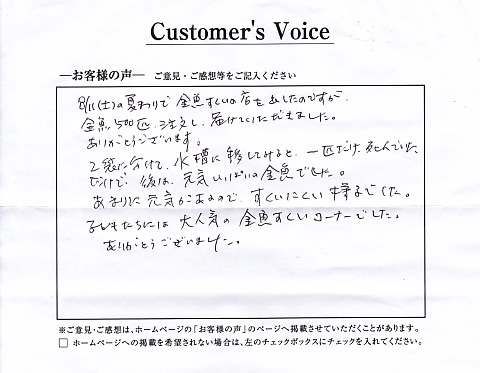 Customer's Voice
―お客様の声― ご意見・ご感想等をご記入ください
8/11(土)の夏まつりで 金魚すくいの店を出したのですが、
金魚 500匹 注文し、届けていただきました。
ありがとうございます。
2袋に分けて、水槽に移してみると、一匹だけ死んでいた
だけで、後は、元気いっぱいの金魚でした。
あまりに元気があるので、すくいにくい 様子でした。
子どもたちには 大人気の 金魚すくいコーナーでした。
ありがとうございました。
※ご意見・ご感想は、ホームページの「お客様の声」のページへ掲載させていただくことがあります。
□ ホームページへの掲載を希望されない場合は、左のチェックボックスにチェックを入れてください。